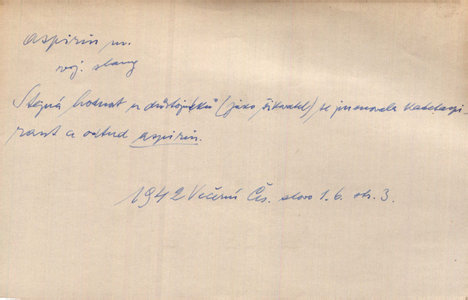 aspirin m.
voj. slang
Stejná hodnost u důstojníků (jako šikovatel) se jmenovala kadetaspi-
rant a odtud aspirin.
1942 Večerní Čes. slovo 1.6. str. 3.